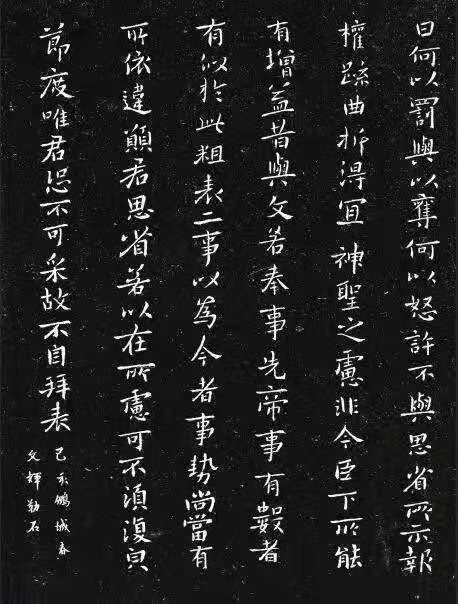 曰何以罰與以奪何以怒許不與思省所示報
權疏曲折得宜神聖之慮非今臣下所能
有增益昔與文若奉事先帝事有數者
有似於此粗表二事以為今者事勢尚當有
所依違願君思省若以在所慮可不須復皃
節度唯君恐不可采故不自拜表
己亥鵬城春
文輝勒石